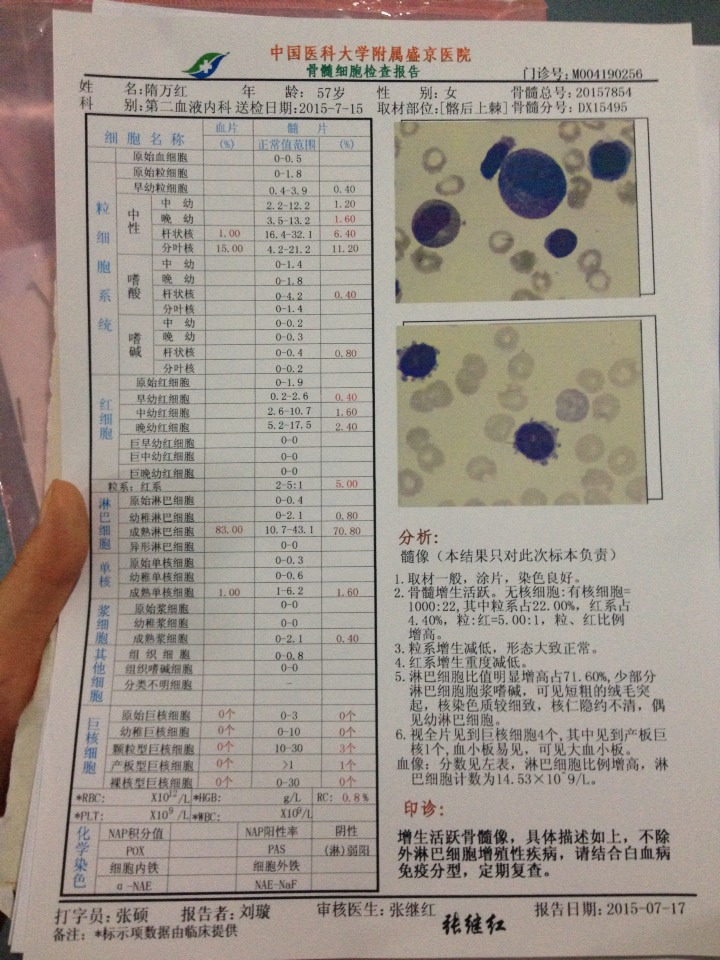 中国医科大学附属盛京医院
骨髓细胞检查报告
门诊号:M004190256
姓 名:隋万红 年 龄: 57岁 性 别:女 骨髓总号:20157854
科 别:第二血液内科 送检日期:2015-7-15 取材部位:[髂后上棘] 骨髓分号: DX15495
细 胞 名 称 血片 (%) 髓 片 正常值范围 (%)
粒细胞系统
原始血细胞 0-0.5
原始粒细胞 0-1.8
早幼粒细胞 0.4-3.9 0.40
中性 中 幼 2.2-12.2 1.20
晚 幼 3.5-13.2 1.60
杆状核 1.00 16.4-32.1 6.40
分叶核 15.00 4.2-21.2 11.20
嗜酸 中 幼 0-1.4
晚 幼 0-1.8
杆状核 0-4.2 0.40
分叶核 0-1.4
嗜碱 中 幼 0-0.2
晚 幼 0-0.3
杆状核 0-0.4 0.80
分叶核 0-0.2
红细胞
原始红细胞 0-1.9
早幼红细胞 0.2-2.6 0.40
中幼红细胞 2.6-10.7 1.60
晚幼红细胞 5.2-17.5 2.40
巨早幼红细胞 0-0
巨中幼红细胞 0-0
巨晚幼红细胞 0-0
粒系: 红系 2-5:1 5.00
淋巴细胞
原始淋巴细胞 0-0.4
幼稚淋巴细胞 0-2.1 0.80
成熟淋巴细胞 83.00 10.7-43.1 70.80
异形淋巴细胞 0-0
单核
原始单核细胞 0-0.3
幼稚单核细胞 0-0.6
成熟单核细胞 1.00 1-6.2 1.60
浆细胞
原始浆细胞 0-0
幼稚浆细胞 0-0
成熟浆细胞 0-2.1 0.40
其他细胞
组 织 细 胞 0-0.8
组织嗜碱细胞 0-0
分类不明细胞 -
巨核细胞
原始巨核细胞 0个 0-3 0个
幼稚巨核细胞 0个 0-10 0个
颗粒型巨核细胞 0个 10-30 3个
产板型巨核细胞 0个 >1 1个
裸核型巨核细胞 0个 0-30 0个
*RBC: X10¹²/L *HGB: g/L RC: 0.8%
*PLT: X10⁹ /L *WBC: X10⁹/L
化学染色
NAP积分值 NAP阳性率 阴性
POX PAS (淋)弱阳
细胞内铁 细胞外铁
α-NAE NAE-NaF
分析:
髓像（本结果只对此次标本负责）
1.取材一般，涂片，染色良好。
2.骨髓增生活跃。无核细胞:有核细胞=
1000:22,其中粒系占22.00%，红系占
4.40%，粒:红=5.00:1，粒、红比例
增高。
3.粒系增生减低，形态大致正常。
4.红系增生重度减低。
5.淋巴细胞比值明显增高占71.60%,少部分
淋巴细胞胞浆嗜碱，可见短粗的绒毛突
起，核染色质较细致，核仁隐约不清，偶
见幼淋巴细胞。
6.视全片见到巨核细胞4个,其中见到产板巨
核1个,血小板易见，可见大血小板。
血像: 分数见左表，淋巴细胞比例增高，淋
巴细胞计数为14.53×10^9/L。
印诊:
增生活跃骨髓像，具体描述如上，不除
外淋巴细胞增殖性疾病，请结合白血病
免疫分型，定期复查。
打字员:张硕 报告者:刘璇 审核医生:张继红 报告日期:2015-07-17
备注: *标示项数据由临床提供
张继红